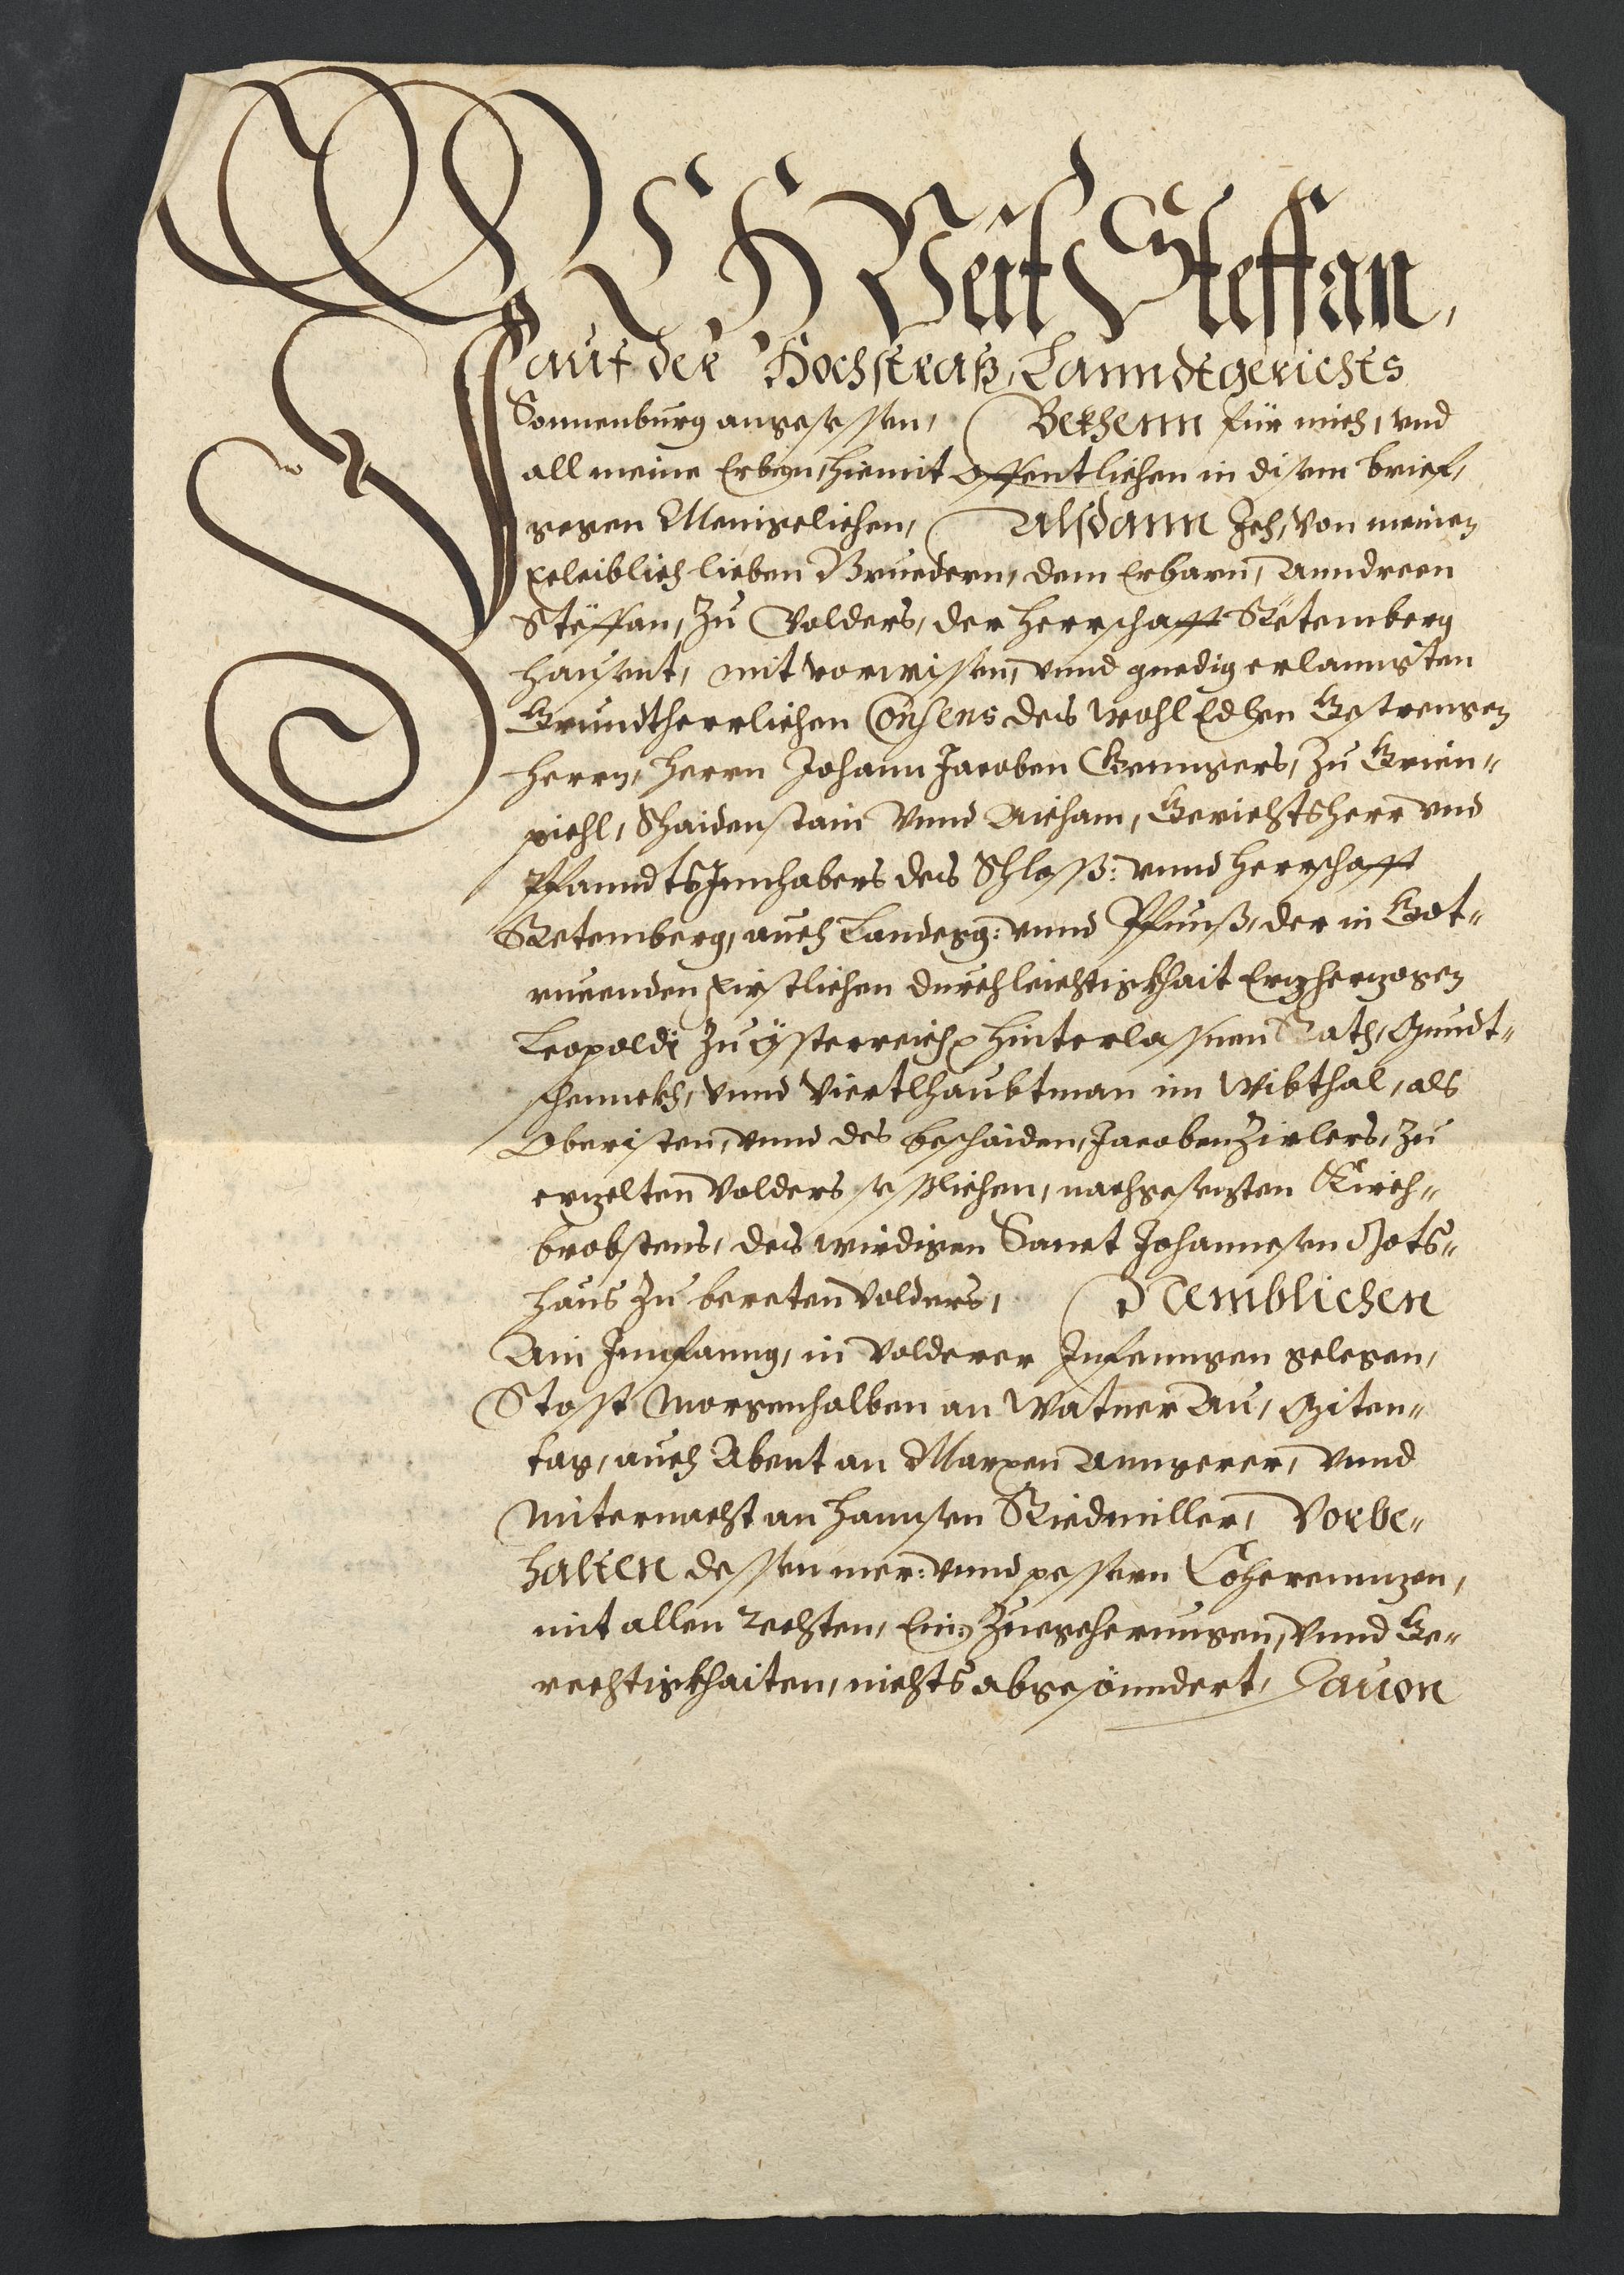 ICH Veit Steffan,
auf der Hochstraß, Lanndtgerichts
Sonnenburg angesessen, Bekhenn für mich, vnd
all meine Erben, hiemit offentlichen in disem brief,
gegen Menigelichen, Alsdann Ich, von meinem
geleiblich lieben Bruedern, dem Erbarn, Anndreen
Stëffan, zu Volders, der Herrschafft Retemberg
hausent, mit vorwissen, vnnd gnedig erlanngten
Grundtherrlichen Consens des Wohl Edlen Gestrengen
Herrn, Herrn Johann Jacoben Genngers, zu Grien-
pichl, Shaidenstain vnnd Aicham, Gerichtsherr vnd
Pfanndts Innhabers des Schloß: vnnd Herrschafft
Retemberg, auch Landegg: vnnd Pfunß, der in Got-
rueenden Fürstlichen durchleichtigkhait Erzherzogen
Leopoldi zu Össterreich hinterlassnen Rath, Mundt-
schennckh, vnnd Viertlhaubtman im Wibthal, als
Obristen, vnnd des beschaiden, Jacoben Zirlers, zu
erzelten Volders seßlichen, nachgesezten Kirch-
brobstens, des wirdigen Sanct Johannesen Gots-
haus zu bereten Volders, Nemblichen
Ain Innfanng, in Volderer Infenngen gelegen,
Stost Morgenhalben an Watner Au, Miten-
tag, auch Abent an Marxen Anngerer, vnnd
Miternacht an Hannsen Riedmiller, Vorbe-
halten dessen mer: vnnd pessern Coherennzen,
mit allen rechten, Ein: Zuegeherungen, vnnd Ge-
rechtigkhaiten, nichts abgesönndert, Dauon